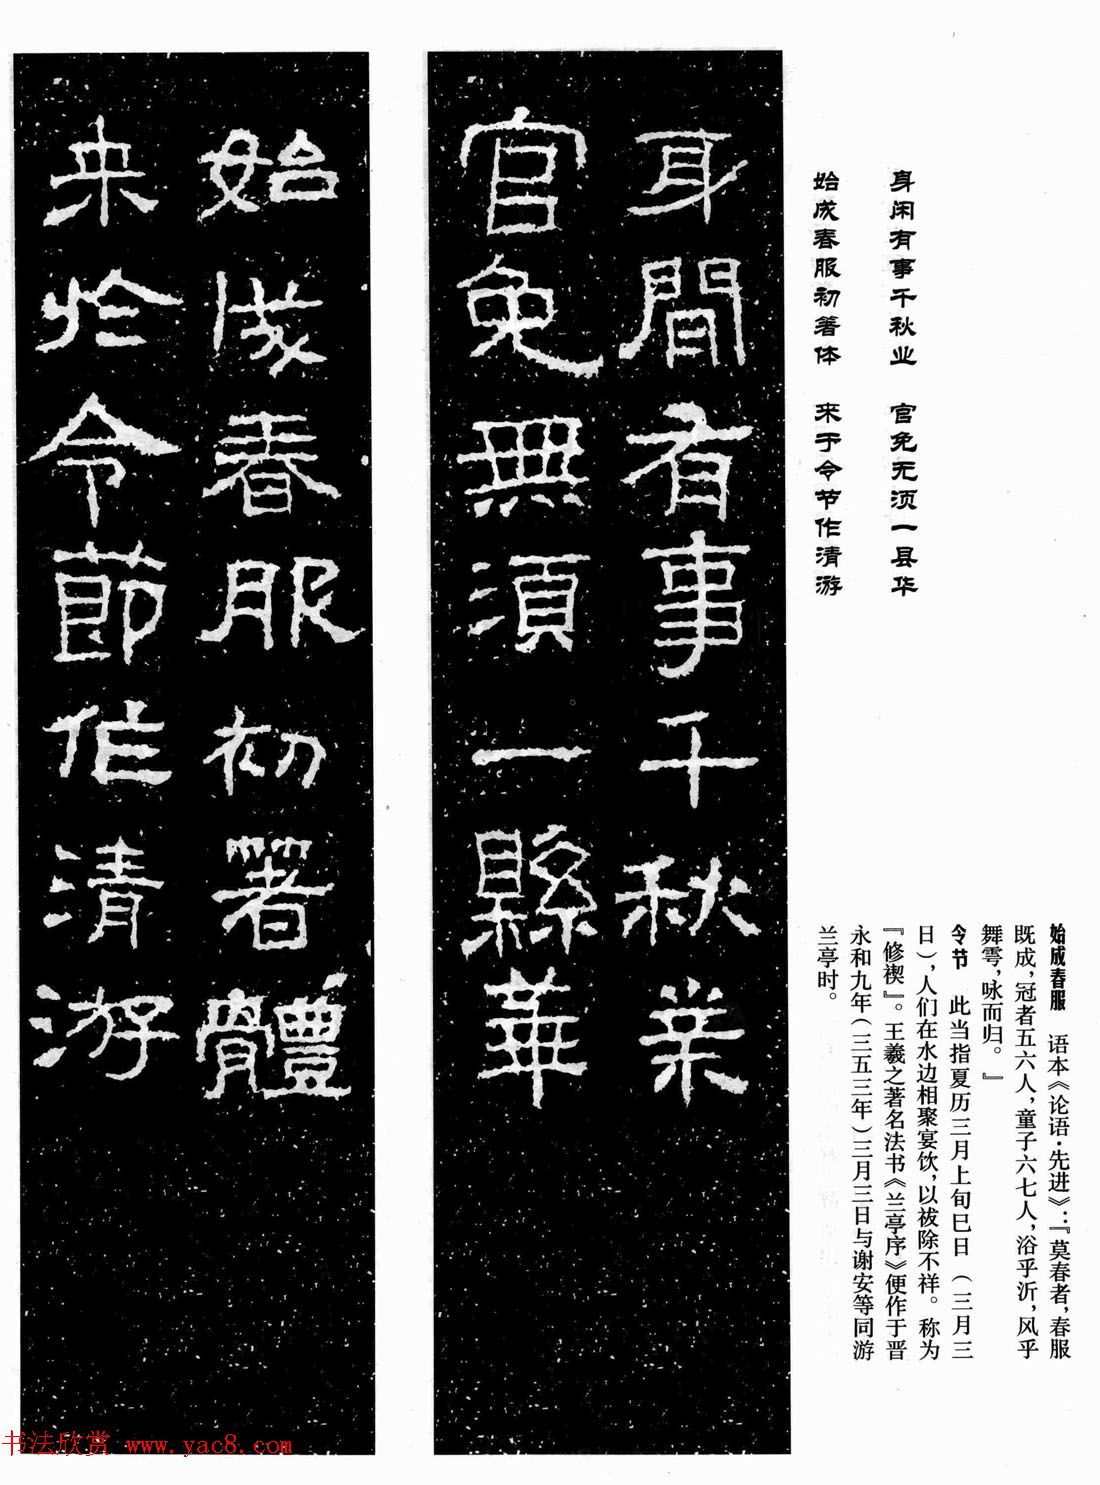 身闲有事千秋业　官免无须一县华
始成春服初著体　来于令节作清游
身閒有事千秋業
官免無須一縣華
始成春服初著體
来於令節作清游
始成春服　语本《论语·先进》：『莫春者，春服
既成，冠者五六人，童子六七人，浴乎沂，风乎
舞雩，咏而归。』
令节　此当指夏历三月上旬巳日（三月三
日），人们在水边相聚宴饮，以祓除不祥。称为
『修禊』。王羲之著名法书《兰亭序》便作于晋
永和九年（三五三年）三月三日与谢安等同游
兰亭时。
书法欣赏 www.yac8.com